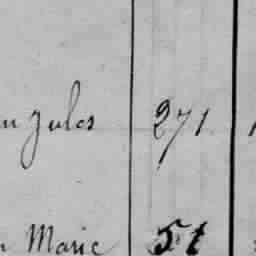 Jules 271
Marie 51